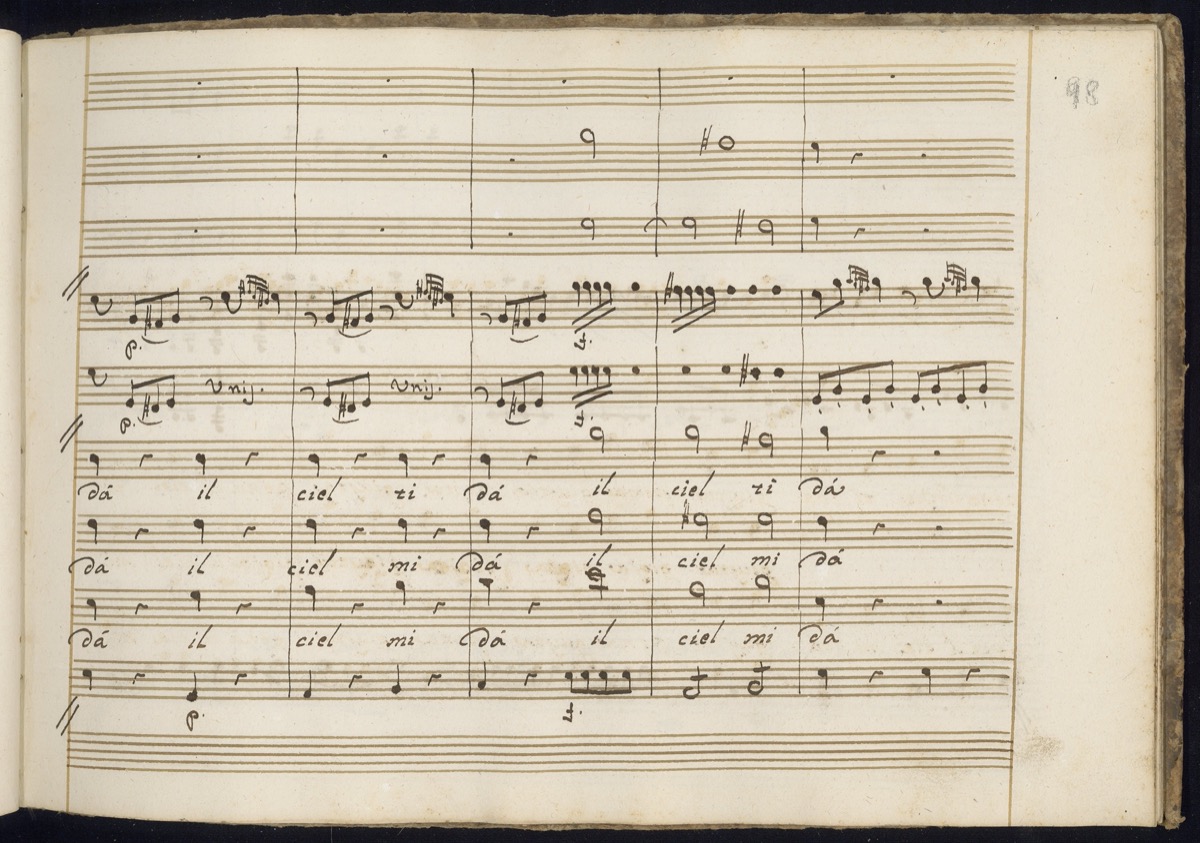 98
p.
f.
unis.
unis.
p.
f.
dá il ciel ti dá il ciel ti dá
dá il ciel mi dá il ciel mi dá
dá il ciel mi dá il ciel mi dá
p.
f.